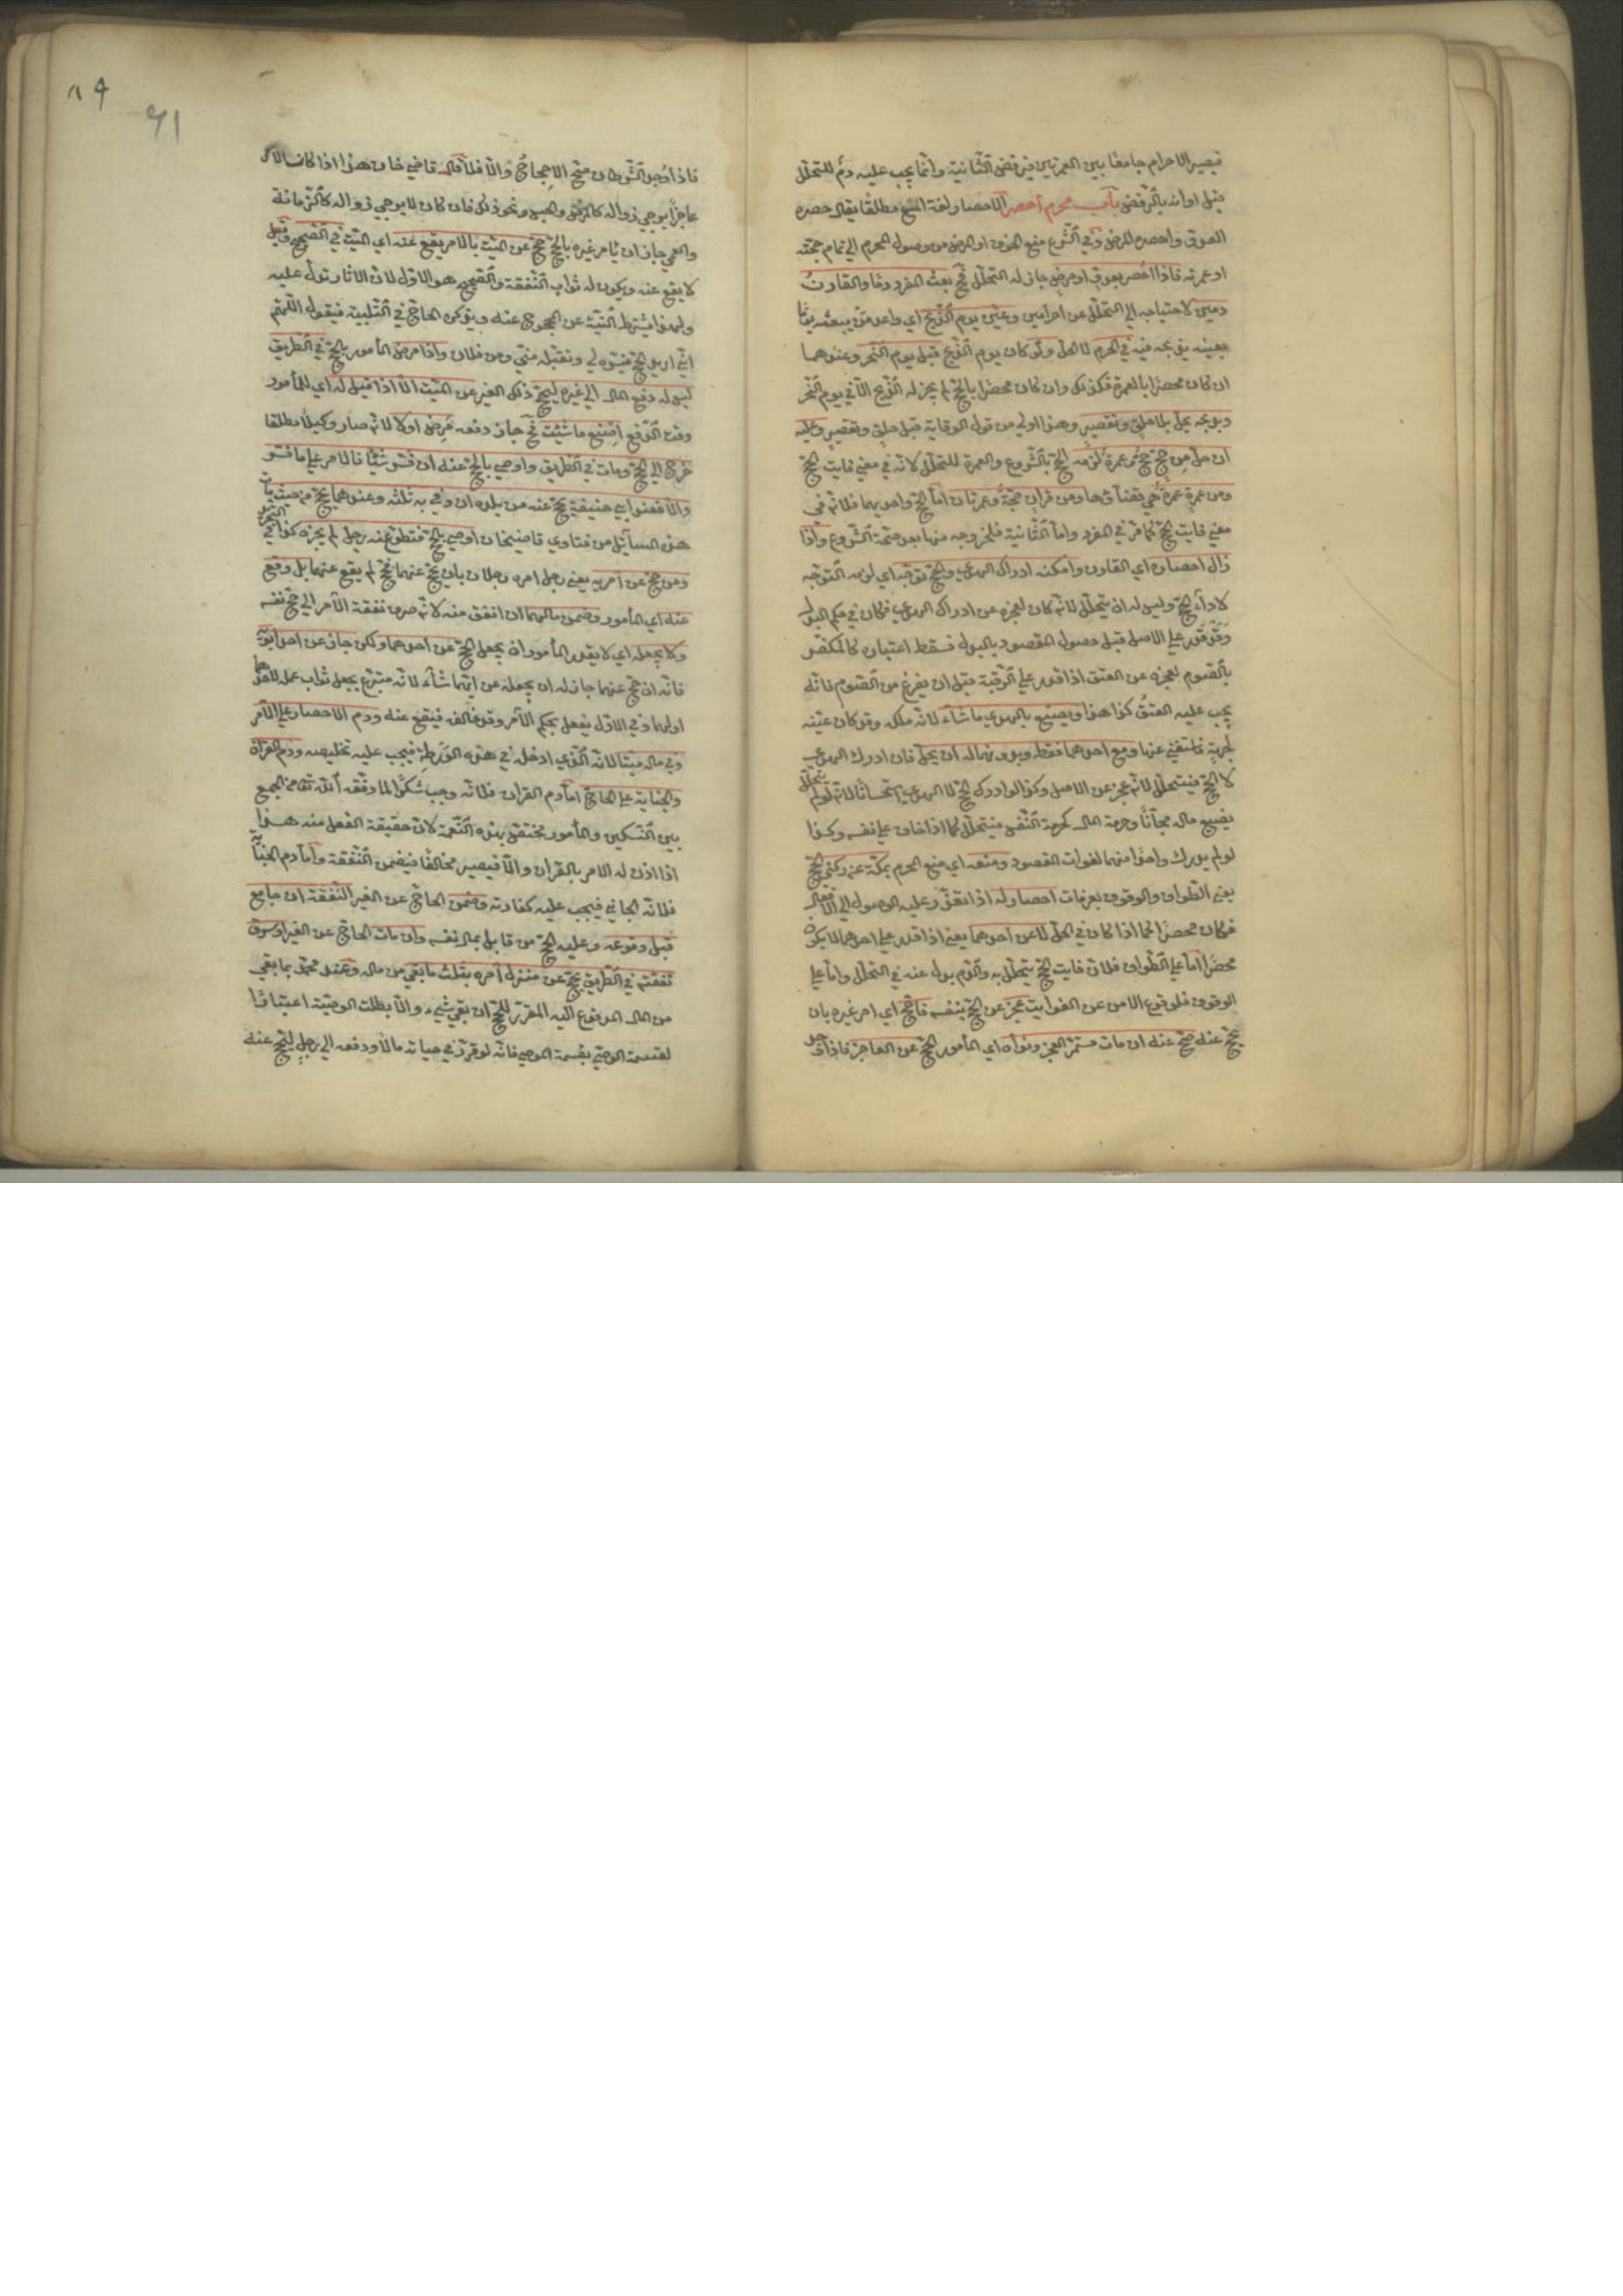 فيصير الاحرام جامعًا بين العمرتين فيرفض الثّانية وانّما يجب عليه دم للتحلّل
قبل اوانه بالرّفض باب محرم احصر الاحصار لغة المنع مطلقًا يقال حصره
العدوّ واحصره المرض وفي الشّرع منع الخوف او المرض من وصول المحرم الي تمام حجّته
او عمرته فاذا احصر بعدوّ او مرض جاز له التحلّل فح بعث المفرد دمًا والقارن
دمين لاحتياجه الي التحلّل عن احرامين وعيّن يوم الذّبح اي واعد من يبعثه يومًا
بعينه يذبحه فيه في الحرم لا الحلّ ولو كان يوم الذّبح قبل يوم النّحر وعندهما
ان كان محصرًا بالعمرة فكذلك وان كان محصرًا بالحجّ لم يجز له الذّبح الّا في يوم النّحر
وبذبحه يحلّ بلا حلق وتقصير وهذا اولي من قول الوقاية قبل حلق وتقصير وعليه
ان حلّ من حجّ حجّ وعمرة لزمه الحجّ بالشّروع والعمرة للتحلّل لانّه في معني فايت الحجّ
ومن عمرة عمرة هي قضاؤها ومن قران حجّة وعمرتان امّا الحجّ واحديهما فلانّه في
معني فايت الحجّ كما مرّ في المفرد وامّا الثّانية فلخروجه منها بعد صحّة الشّروع واذا
زال احصاره اي القارن وامكنه ادراك الهدي والحجّ توجّه اي لزمه التّوجّه
لاداء الحجّ وليس له ان يتحلّل لانّه كان لعجزه عن ادراك الهدي فكان في حكم البدل
وقد قدر علي الاصل قبل حصول المقصود بالبدل فسقط اعتباره كالمكفّر
بالصّوم لعجزه عن العتق اذا قدر علي الرّقبة قبل ان يفرغ من الصّوم فانّه
يجب عليه العتق كذا هذا ويصنع بالهدي ما شاء لانّه ملكه وقد كان عيّنه
لجهة فاستغني عنها ومع احدهما فقط وبدونهما له ان يحلّ فان ادرك الهدي
لا الحجّ فيتحلّل لانّه عجز عن الاصل وكذا لو ادرك الحجّ لا الهدي استحسانًا لانّه لو لم يتحلّل
يضيع ماله مجانًا وحرمة المال كحرمة النّفس فيتحلّل كما اذا خاف علي نفسه وكذا
لو لم يدرك واحدًا منهما لفوات المقصود ومنعه اي منع المحرم بمكّة عن ركني الحجّ
يعني الطّواف والوقوف بعرفات احصار له اذا تعذّر عليه الوصول الي الافعال
فكان محصرًا كما اذا كان في الحلّ لا عن احدهما يعني اذا قدر علي احدهما لا يكون
محصرًا امّا علي الطّواف فلانّ فايت الحجّ يتحلّل به والدّم بدل عنه في التحلّل وامّا علي
الوقوف فلوقوع الامن عن الفوات عجز عن الحجّ بنفسه فاحجّ اي امر غيره بان
يحجّ عنه صحّ عنه ان مات مستمرّ العجز ونواه اي المأمور الحجّ عن العاجز فاذا
فاذا وجد الشّرطان صحّ الاحجاج والّا فلا قال قاضي خان هذا اذا كان الامر
عاجزًا يرجي زواله كالمرض والحبس ونحو ذلك فان كان لا يرجي زواله كالزّمانة
والعمي جاز ان يأمر غيره بالحجّ حجّ عن الميّت بالامر يقع عنه اي الميّت في الصّحيح وقيل
لا يقع عنه ويكون له ثواب النّفقة والصّحيح هو الاوّل لانّ الاثار تدلّ عليه
ولهذا يشترط النّيّة عن المحجوج عنه ويذكره الحاجّ في التّلبية فيقول اللّهمّ
انّي اريد الحجّ فيسّره لي وتقبّله منّي ومن فلان واذا مرض المأمور بالحجّ في الطّريق
ليس له دفع المال الي غيره ليحجّ ذلك الغير عن الميّت الّا اذا قيل له اي للمأمور
وقت الدّفع اصنع ما شئت فح جاز دفعه مرض او لا لانّه صار وكيلًا مطلقا
خرج الي الحجّ ومات في الطّريق واوصي بالحجّ عنه ان فسّر شيئًا فالامر علي ما فسّر
والّا فعند ابي حنيفة يحجّ عنه من بلده ان وفي به ثلثه وعندهما يحجّ من حيث مات
هذه المسائل من فتاوي قاضيخان اوصي بالحجّ فتطوّع عنه رجل لم يجزه كذا في
ومن حجّ عن آمريه يعني رجل امره رجلان بان يحجّ عنهما فحجّ لم يقع عنهما بل وقع
عنه اي المأمور وضمن مالهما ان انفق منه لانّه صرف نفقة الآمر الي حجّ نفسه
ولا يجعله اي لا يقدر المأمور ان يجعل الحجّ عن احدهما ولكن جاز عن احد ابويه
فانّه ان حجّ عنهما جاز له ان يجعله عن ايّهما شاء لانّه متبرّع بجعل ثواب عمله لاحدهما
او لهما وفي الاوّل يفعل بحكم الآمر وقد خالفه فيقع عنه ودم الاحصار علي الآمر
وفي ماله ميّتا لانّه الّذي ادخله في هذه الورطة فيجب عليه تخليصه ودم القران
والجناية علي الحاجّ امّا دم القران فلانّه وجب شكرًا لما وفّقه اللّه تعالي من الجمع
بين النّسكين والمأمور مختصّ بهذه النّعمة لانّ حقيقة الفعل منه هذا
اذا اذن له الآمر بالقران والّا فيصير مخالفًا فيضمن النّفقة وامّا دم الجناية
فلانّه الجاني فيجب عليه كفّارته وضمن الحاجّ عن الغير النّفقة ان جامع
قبل وقوعه وعليه الحجّ من قابل بمال نفسه وان مات الحاجّ عن الغير او سرق
نفقته في الطّريق يحجّ عن منزل آمره بثلث ما بقي من ماله وعند محمّد بما بقي
من المال المدفوع اليه المقرّر للحجّ ان بقي شيء والّا بطلت الوصيّة اعتبارًا
لقسمة الوصيّ بقسمة الموصي فانّه لو قرّر في حياته مالًا ودفعه الي رجل ليحجّ عنه